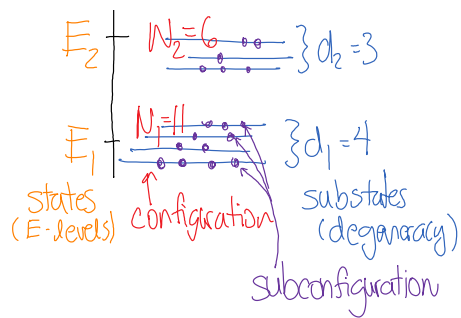 E₂
N₂=6
d₂=3
E₁
N₁=11
d₁=4
states
(E-levels)
configuration
substates
(degeneracy)
subconfiguration